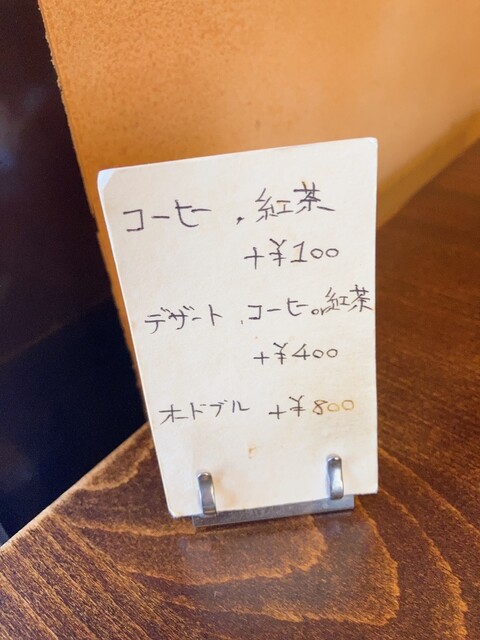 コーヒー、紅茶
+¥100
デザート、コーヒーor紅茶
+¥400
オードブル +¥800